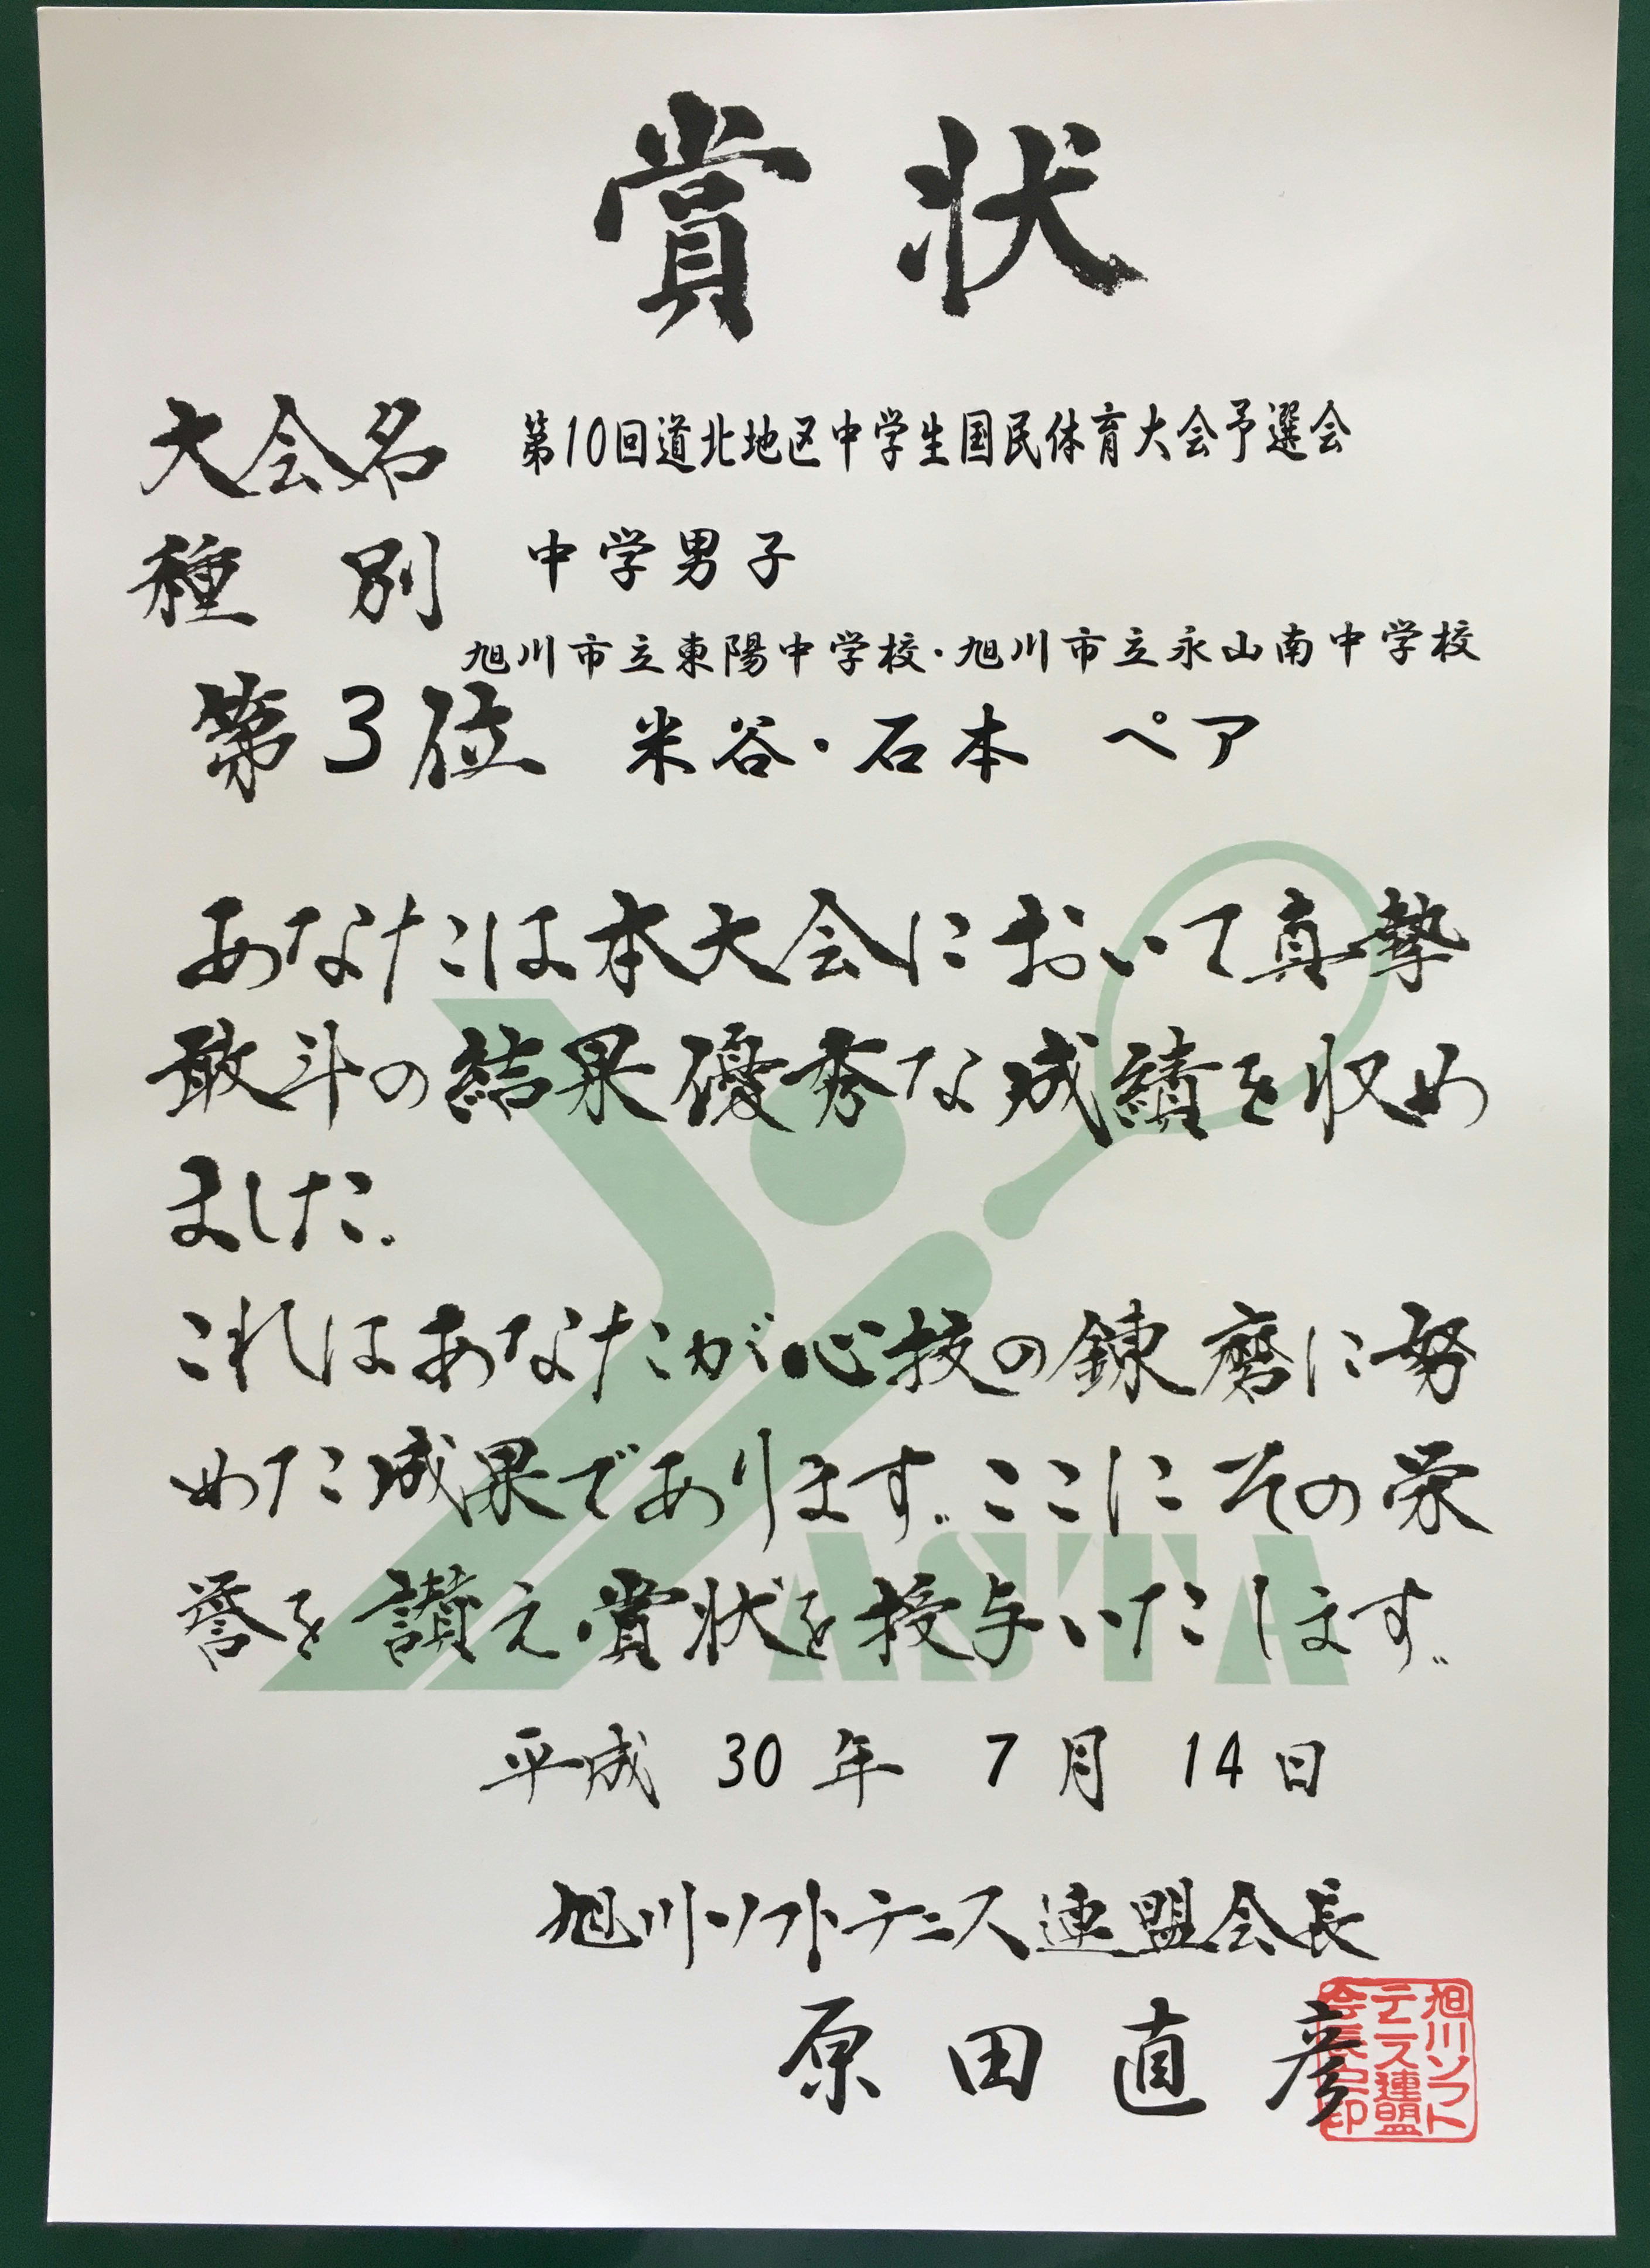 賞状
大会名 第10回道北地区中学生国民体育大会予選会
種別 中学男子
旭川市立東陽中学校・旭川市立永山南中学校
第3位 米谷・石本 ペア
あなたは本大会において真摯
敢斗の結果優秀な成績を収め
ました。
これはあなたが心技の錬磨に努
めた成果であります。ここにその栄
誉を讃え賞状を授与いたします。
ASTA
平成 30 年 7 月 14 日
旭川ソフトテニス連盟会長
原田直彦
旭川ソフト
テニス連盟
会長之印